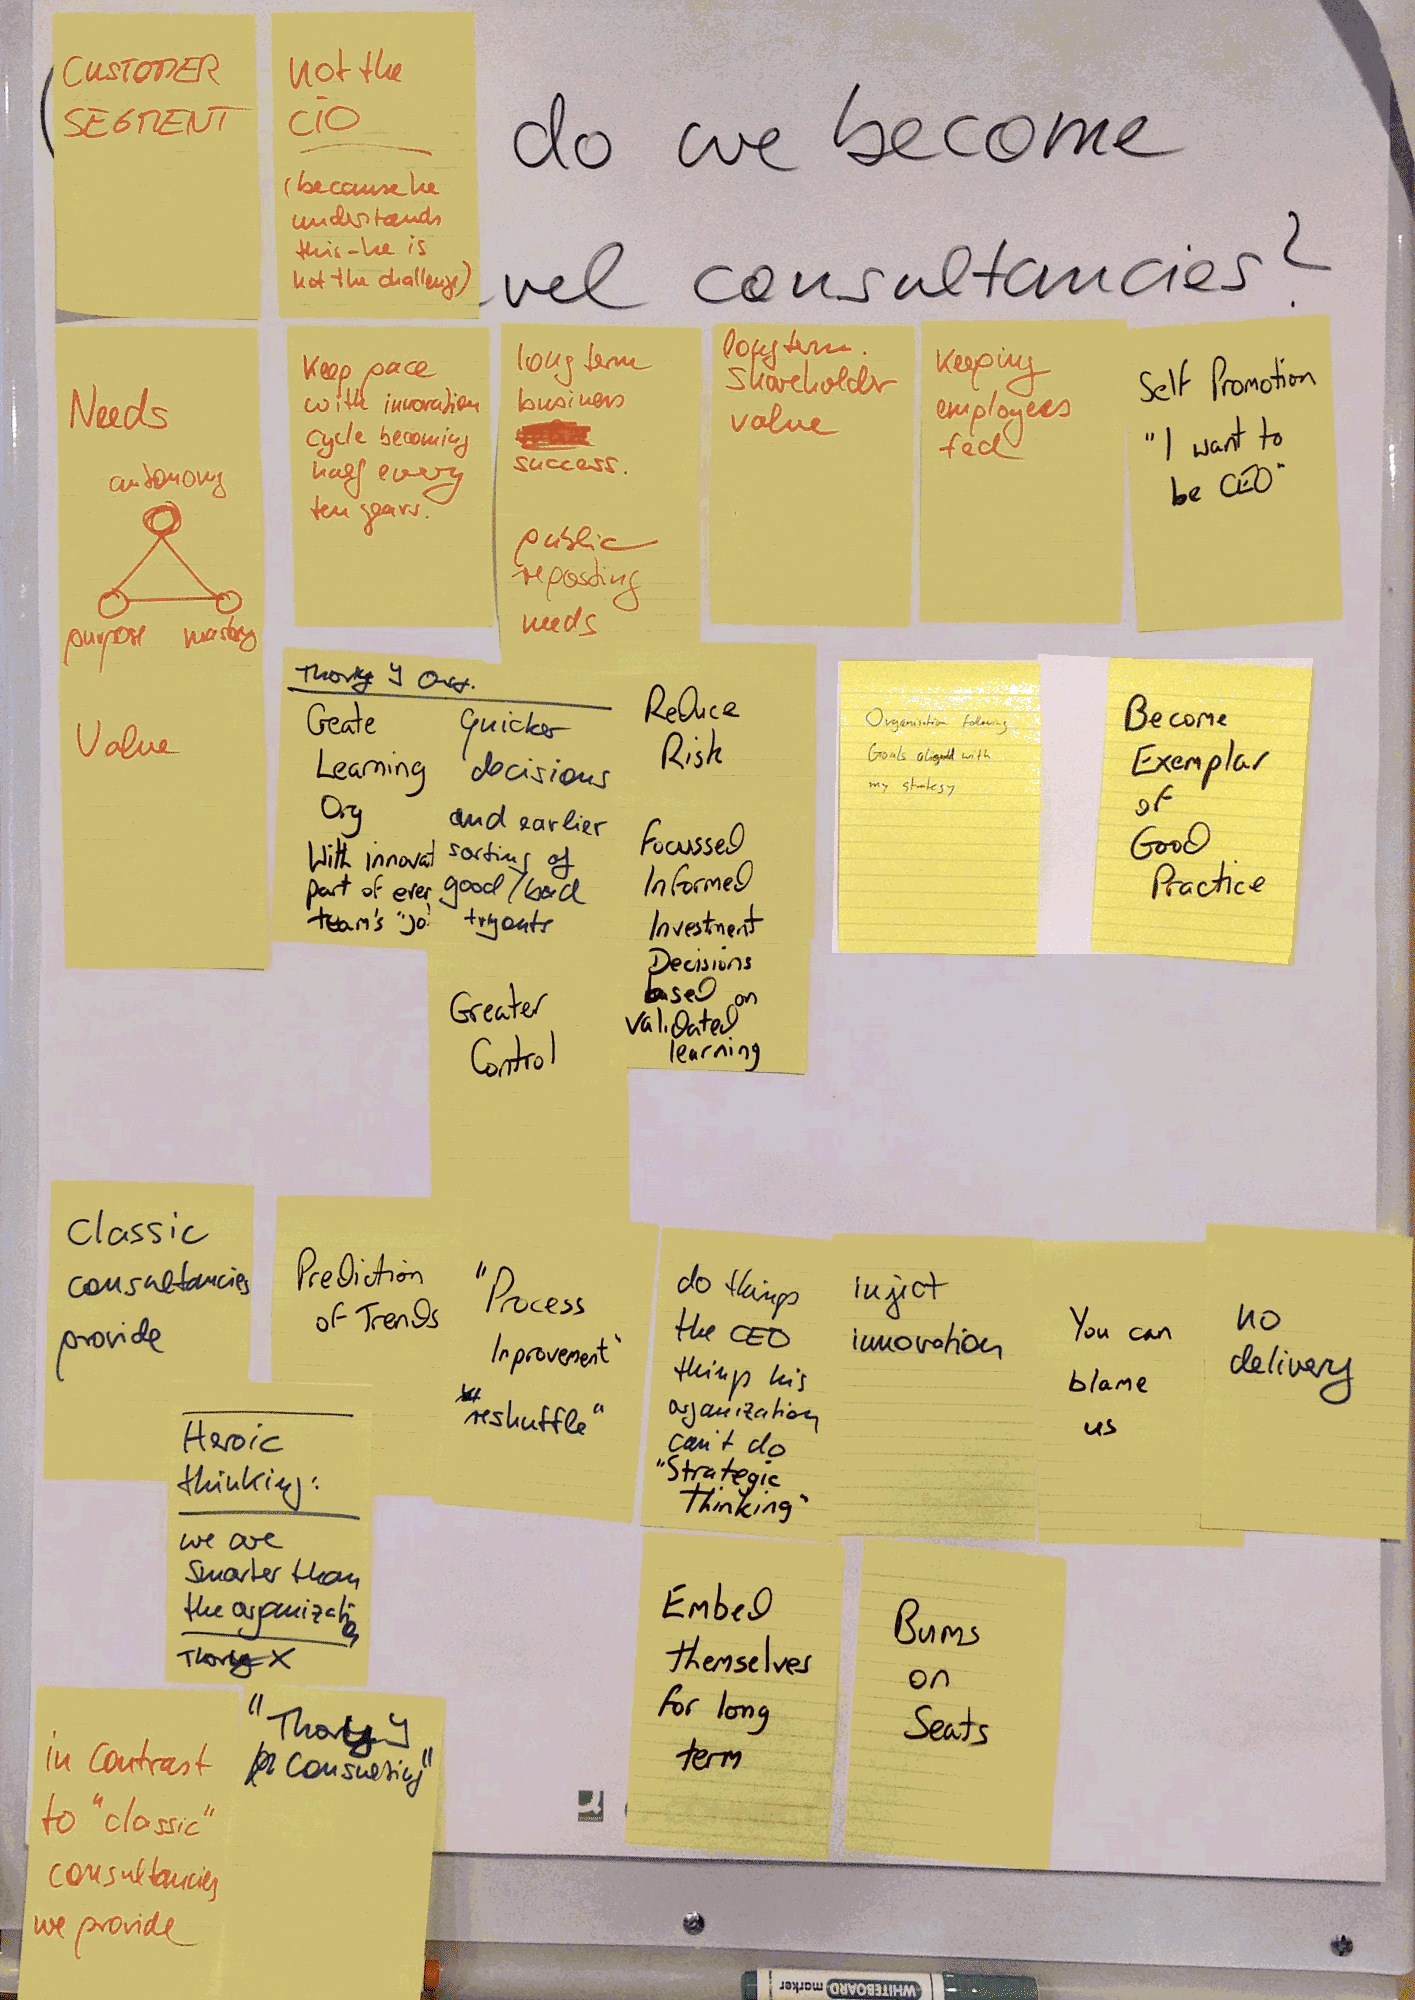 CUSTOMER
SEGMENT
not the
CIO
(because he
understands
this - he is
not the challenge)
do we become
vel consultancies?
Needs
autonomy
purpose mastery
Keep pace
with innovation
cycle becoming
half every
ten years.
long term
business
success.
public
reporting
needs
long term
shareholder
value
keeping
employees
fed
Self Promotion
"I want to
be CEO"
Value
Theory Y Org.
Create
Learning
Org
With innovat
part of ever
team's "jo
Quicker
decisions
and earlier
sorting of
good/bad
tryouts
Greater
Control
Reduce
Risk
Focussed
Informed
Investment
Decisions
based on
validated
learning
Organisation following
Goals aligned with
my strategy
Become
Exemplar
of
Good
Practice
Classic
consultancies
provide
Prediction
of Trends
"Process
Inprovement"
reshuffle"
do things
the CEO
things his
organization
can't do
"Strategic
Thinking"
inject
innovation
You can
blame
us
no
delivery
Heroic
thinking:
we are
smarter than
the organization
Theory X
Embed
themselves
for long
term
Bums
on
Seats
in contrast
to "classic"
consultancies
we provide
"Theory Y
for Consulting"
WHITEBOARD
marker